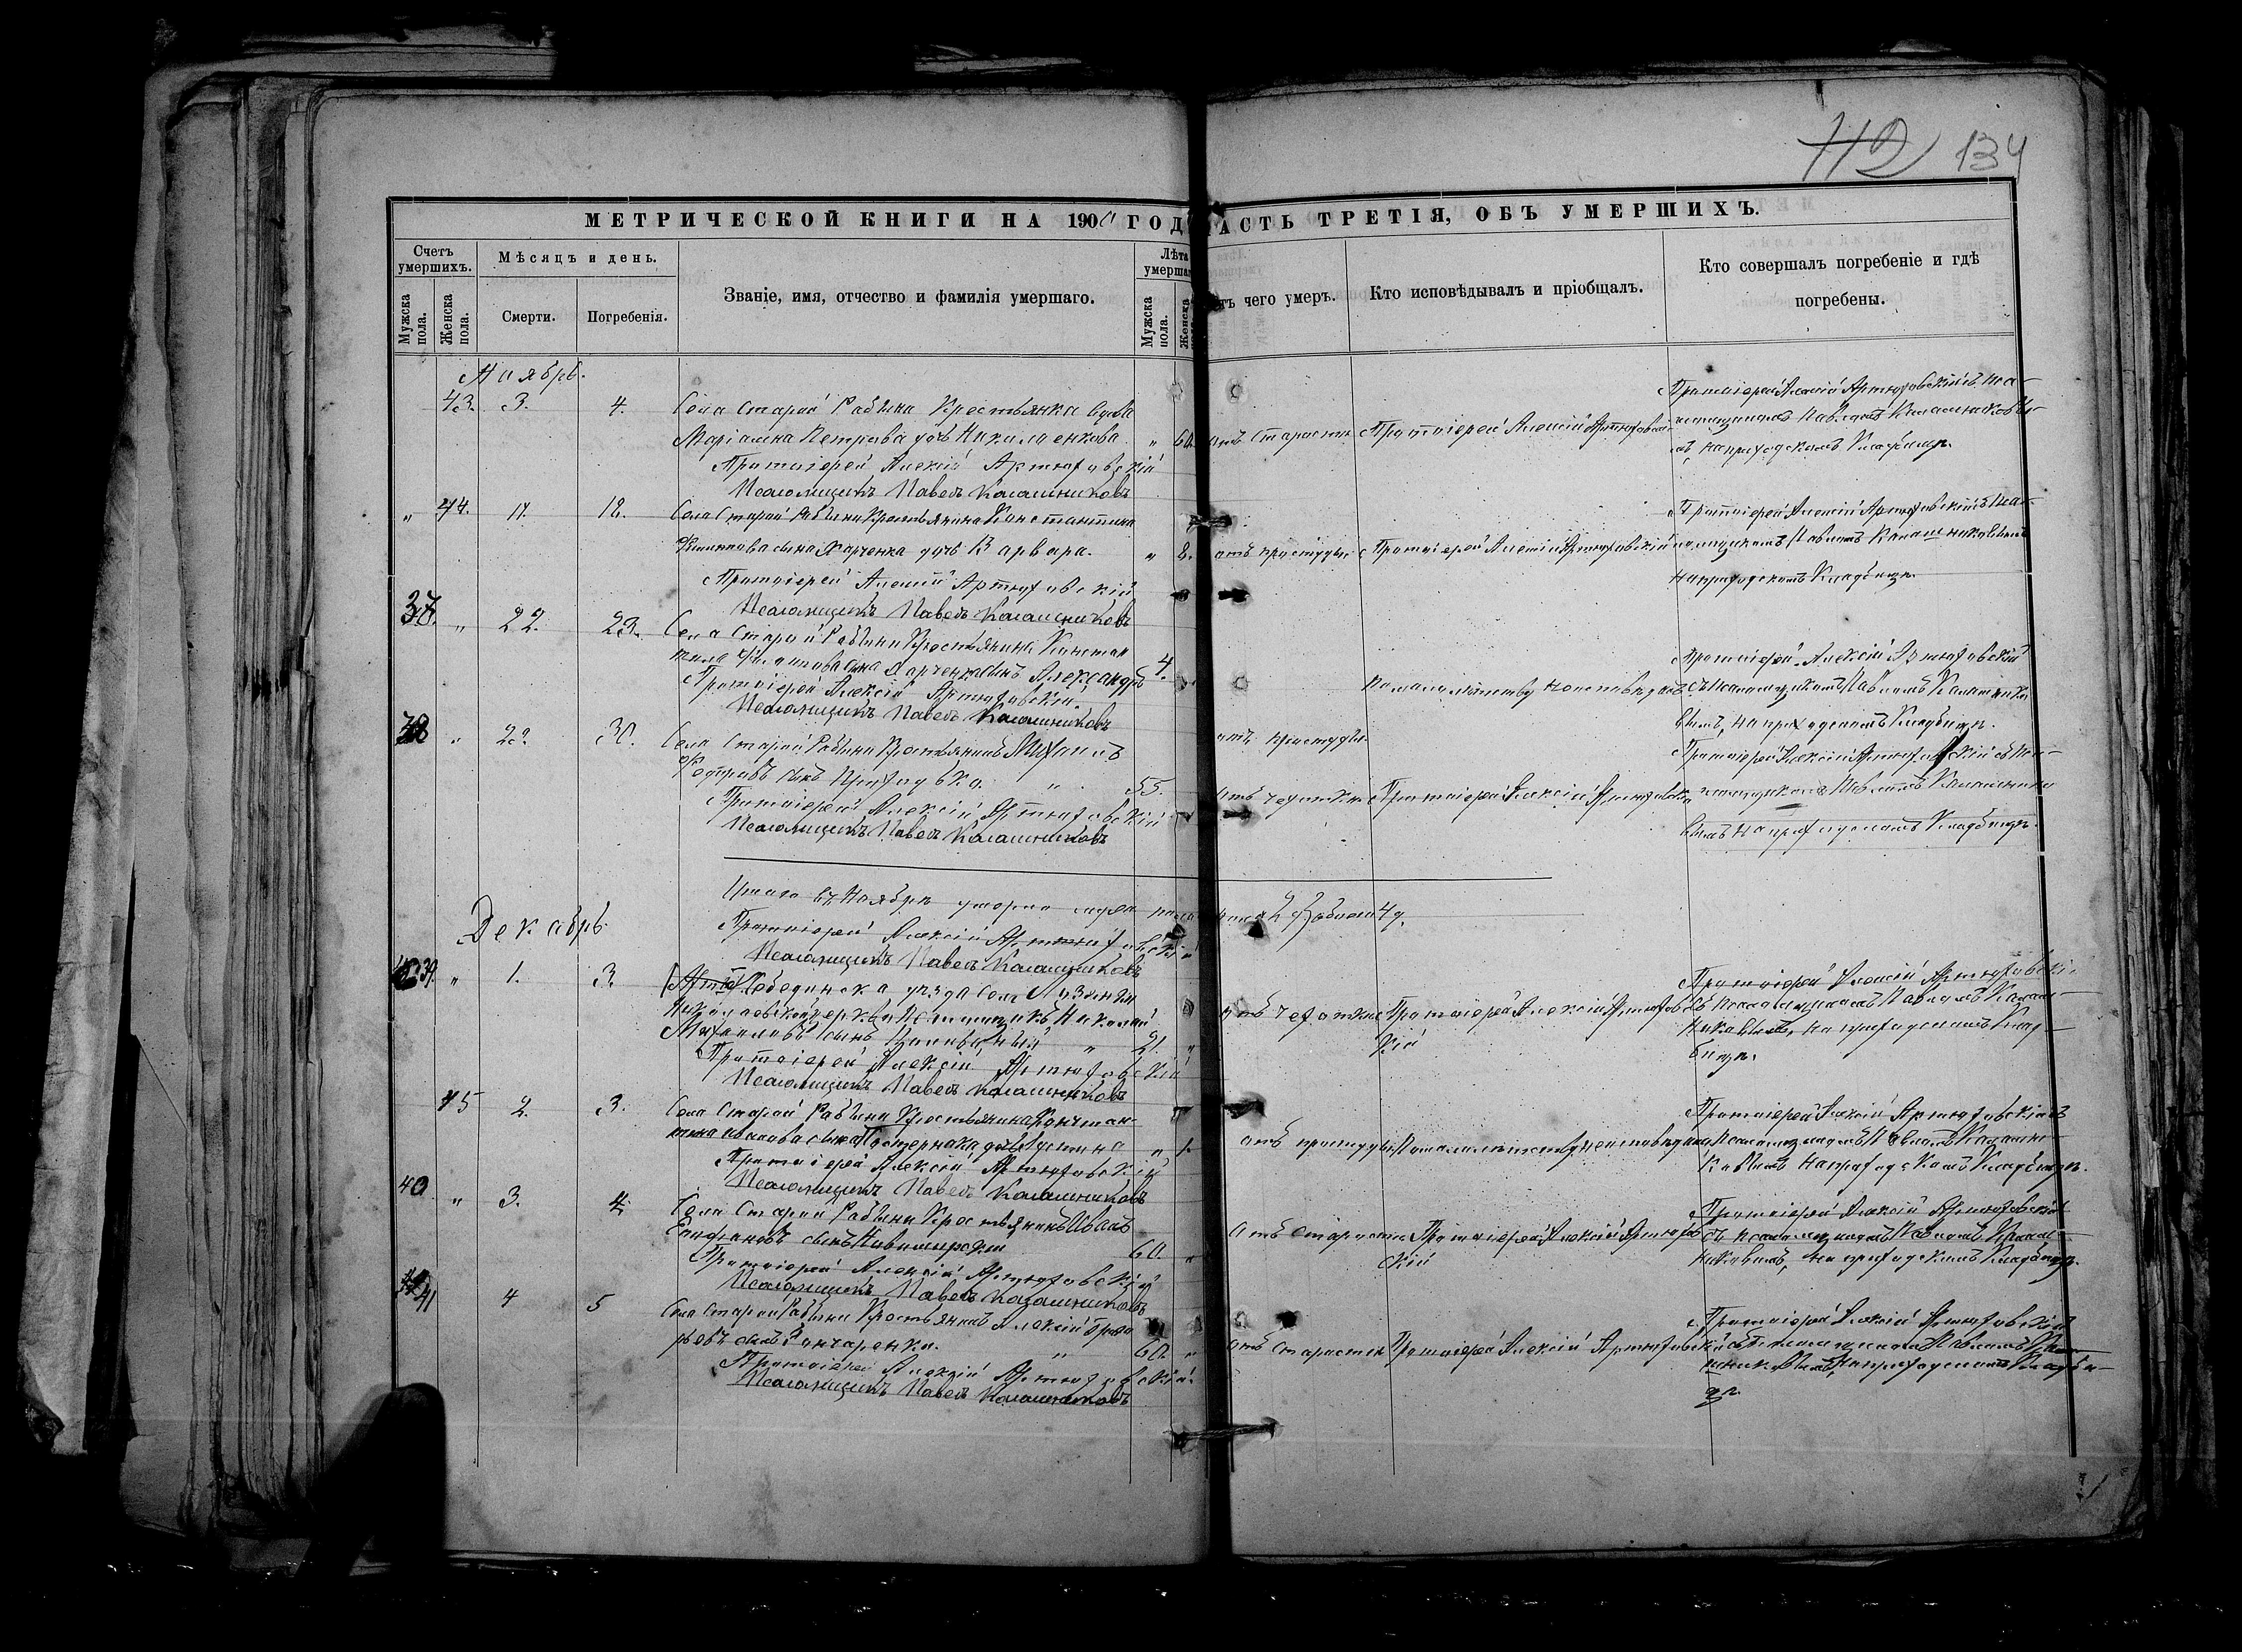 112 134
МЕТРИЧЕСКОЙ КНИГИ НА 1900 ГОД АСТЬ ТРЕТІЯ, ОБЪ УМЕРШИХЪ.
Счетъ умершихъ.
Мѣсяцъ и день.
Званіе, имя, отчество и фамилія умершаго.
Лѣта умерша
Мужска пола.
Женска пола.
Смерти.
Погребенія.
Мужска пола.
Женска
тъ чего умеръ.
Кто исповѣдывалъ и пріобщалъ.
Кто совершалъ погребеніе и гдѣ погребены.
Ноябрь.
43. 3. 4. Села Старой Рабины Крестьянка вдова
Маріамна Петрова дочь Николаенкова " 60. отъ старости Протоіерей Алексій Артюховскій
Протоіерей Алексій Артюховскій съ псаломщикомъ Павломъ Калашниковымъ, на приходскомъ кладбищѣ.
Протоіерей Алексій Артюховскій
Псаломщикъ Павелъ Калашниковъ
" 44. 11. 12. Села Старой Рабины Крестьянина Константина
сына Харченка дочь Варвара. " 8. отъ простуды Протоіерей Алексій Артюховскій
Протоіерей Алексій Артюховскій съ псаломщикомъ Павломъ Калашниковымъ
на приходскомъ кладбищѣ.
Протоіерей Алексій Артюховскій
Псаломщикъ Павелъ Калашниковъ
37. " 22. 23. Села Старой Рабины Крестьянина Констан
тина сына Харченка сынъ Александръ 4.
По малолѣтству не исповѣданъ
Протоіерей Алексій Артюховскій
съ псаломщикомъ Павломъ Калашнико
вымъ, на приходскомъ кладбищѣ.
Протоіерей Алексій Артюховскій
Псаломщикъ Павелъ Калашниковъ
отъ простуды.
38 " 29. 30. Села Старой Рабины Крестьянинъ Михаилъ
Федоровъ сынъ Приходько. " 55.
отъ чахотки Протоіерей Алексій Артюховскі
Протоіерей Алексій Артюховскій съ пса
ломщикомъ Павломъ Калашнико
вымъ на приходскомъ кладбищѣ.
Протоіерей Алексій Артюховскій
Псаломщикъ Павелъ Калашниковъ
Итого въ Ноябрѣ умерло муж. пола
Протоіерей Алексій Артюховскій
Псаломщикъ Павелъ Калашниковъ
Декабрь.
39. " 1. 3. Лебединска уѣзда села
Николаевской церкви Псаломщикъ Николай
Михаиловъ сынъ " 21. "
отъ чахотки Протоіерей Алексій Артюховскій
Протоіерей Алексій Артюховскі
съ псаломщикомъ Павломъ Калаш
никовымъ, на приходскомъ клад
бищѣ.
Протоіерей Алексій Артюховскій
Псаломщикъ Павелъ Калашниковъ
45 2. 3. Села Старой Рабины Крестьянина Констан
тина Иванова сына Пастернака дочь Іустина " 1.
отъ простуды По малолѣтству не исповѣдана
Протоіерей Алексій Артюховскій съ
псаломщикомъ Павломъ Калашни
ковымъ на приходскомъ кладбищѣ.
Протоіерей Алексій Артюховскій
Псаломщикъ Павелъ Калашниковъ
40 " 3. 4. Села Старой Рабины Крестьянинъ Иванъ
Епифановъ сынъ 60. "
отъ старости Протоіерей Алексій Артюховскій
Протоіерей Алексій Артюховскій
съ псаломщикомъ Павломъ Калаш
никовымъ, на приходскомъ кладбищѣ.
Протоіерей Алексій Артюховскій
Псаломщикъ Павелъ Калашниковъ
41 4 5 Села Старой Рабины Крестьянинъ Алексій Григо
рьевъ сынъ Гончаренко. " 60. "
отъ старости Протоіерей Алексій Артюховскій
Протоіерей Алексій Артюховскій
съ псаломщикомъ Павломъ Кала
шниковымъ, на приходскомъ кладби
щѣ.
Протоіерей Алексій Артюховскій.
Псаломщикъ Павелъ Калашниковъ